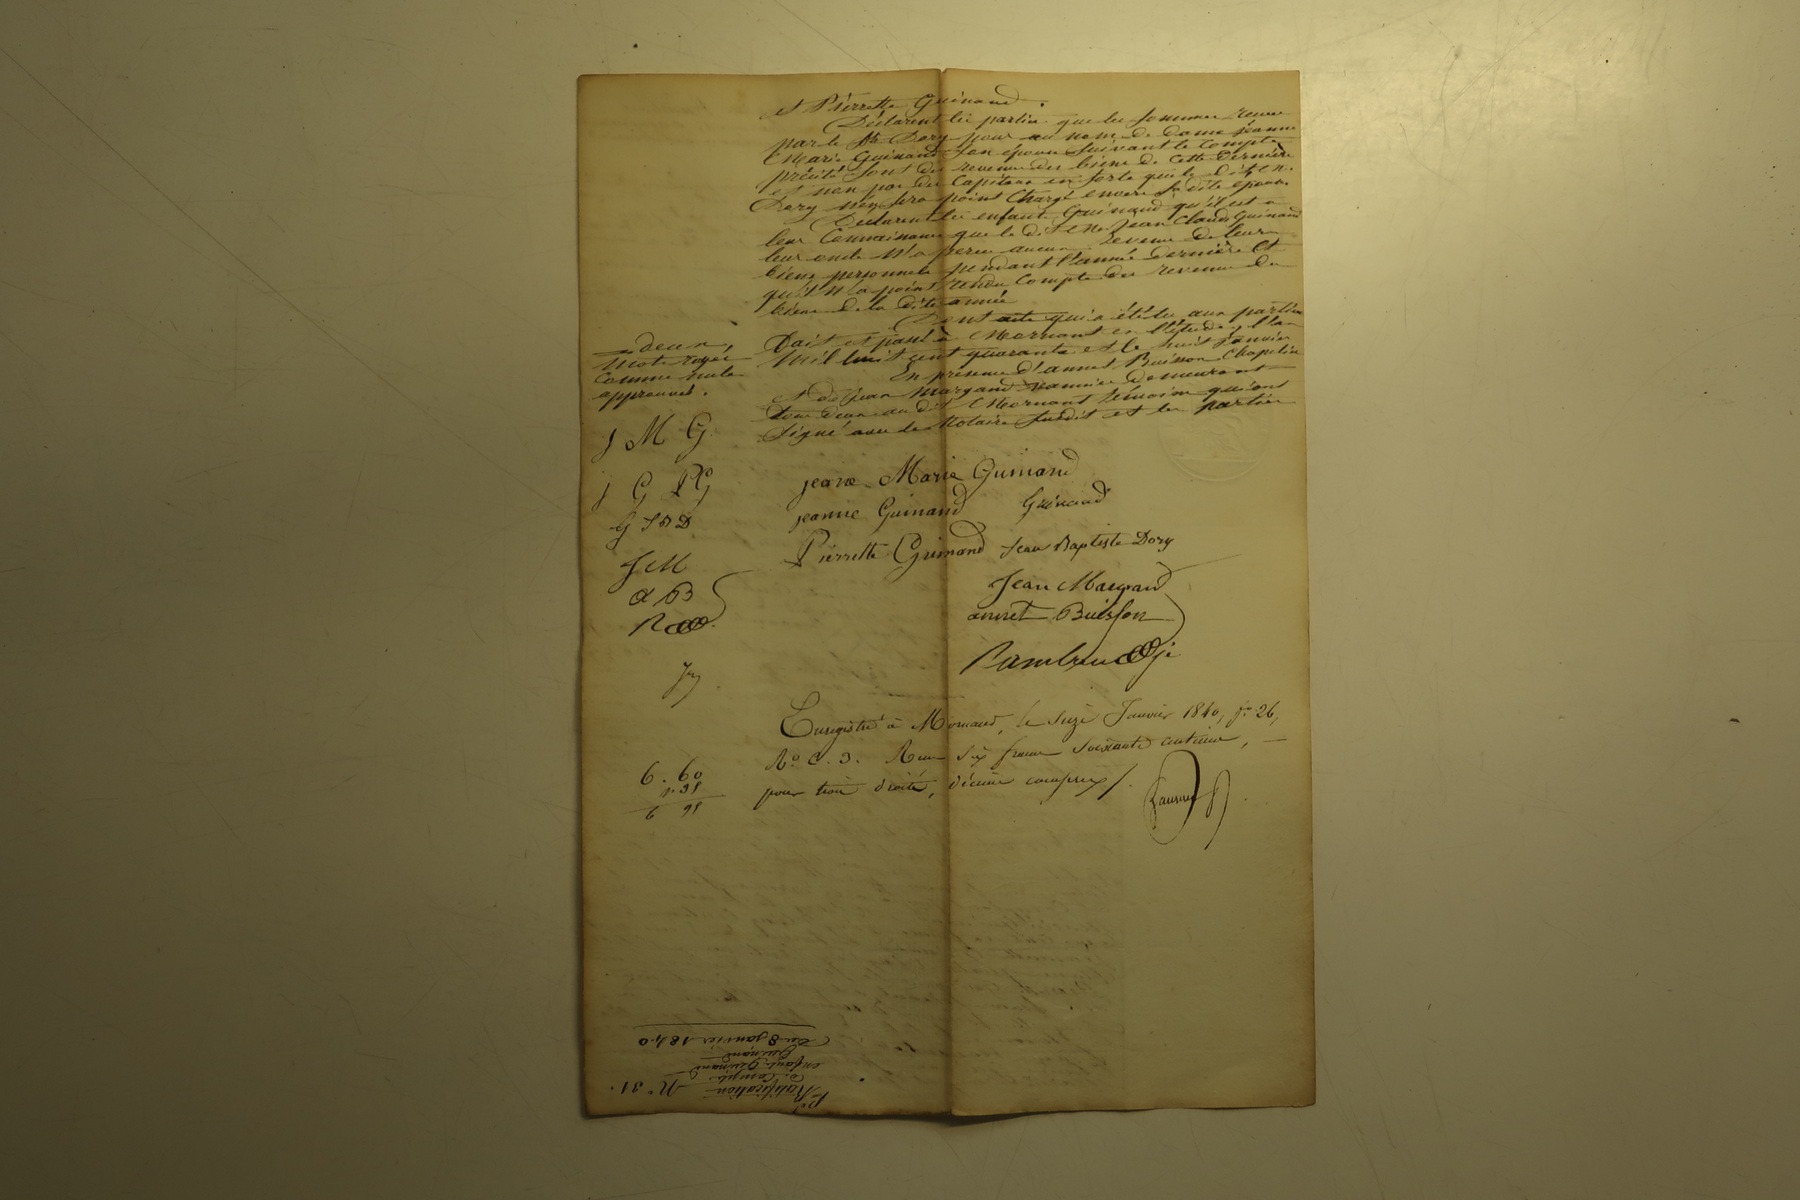 et Pierrette Guinand.
Déclarent les parties que les sommes reçues
par le Sr Dory pour au nom de dame jeanne
Marie Guinand son épouse suivant le compte
précité sont des revenus des biens de cette dernière
et non pas des Capitaux en sorte que le dit Sr
Dory n'en sera point Chargé envers sa dite épouse
Déclarent les enfants Guinand qu'il est à
leur Connaissance que le dit Sr Jean Claude Guinand
leur oncle n'a perçu aucun revenu de leurs
biens personnels pendant l'année dernière et
qu'il n'a point rendu Compte des revenus des
biens de la dite année
Dont acte qui a été lu aux parties
Fait et passé à Mornant en l'étude, l'an
Mil huit cent quarante et le huit janvier
En présence d'annet Buisson Chapelier
et de Jean Margand demeurant
tous deux au dit Mornant témoins qui ont
Signé avec le Notaire susdit et les parties
deux
mots rayés
comme nuls
approuvés.
J M G
j G PG
G J B D
J M
a B
R
jeane Marie Guinand
jeanne Guinand Guinand
Pierrette Guinand Jean Baptiste Dory
Jean Margand
annet Buisson
Enregistré à Mornant, le Janvier 1840, fo 26,
Ro C. 3. Reçu six francs soixante centimes,
pour trois droits, décime compris.
6. 60
6 95
No 31.
Ratification
de Compte
enfants Guinand
Guinand
Du 8 janvier 1840